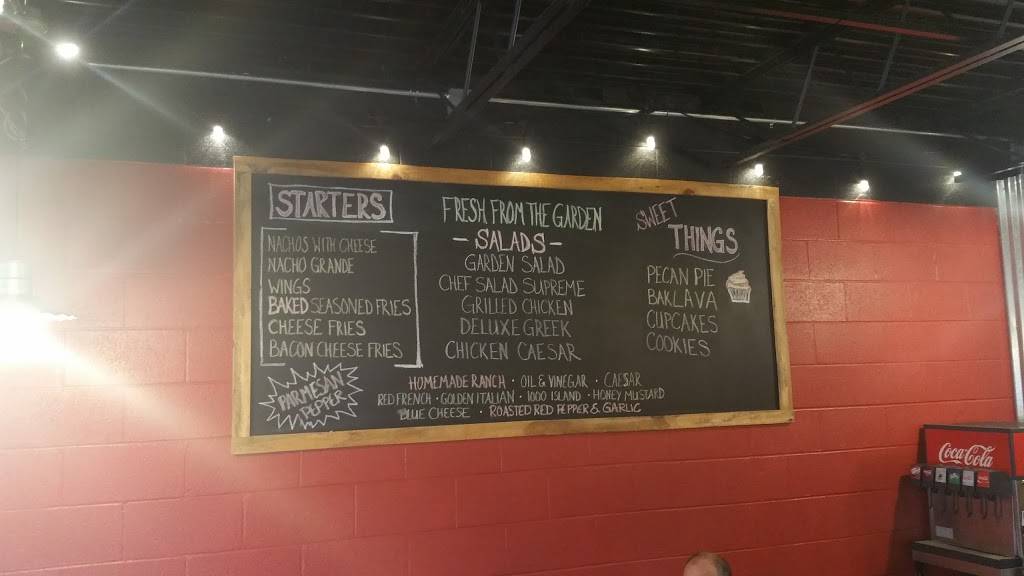 STARTERS
NACHOS WITH CHEESE
NACHO GRANDE
WINGS
BAKED SEASONED FRIES
CHEESE FRIES
BACON CHEESE FRIES
PARMESAN
PEPPER
FRESH FROM THE GARDEN
- SALADS -
GARDEN SALAD
CHEF SALAD SUPREME
GRILLED CHICKEN
DELUXE GREEK
CHICKEN CAESAR
SWEET
THINGS
PECAN PIE
BAKLAVA
CUPCAKES
COOKIES
HOMEMADE RANCH · OIL & VINEGAR · CAESAR
RED FRENCH · GOLDEN ITALIAN · 1000 ISLAND · HONEY MUSTARD
BLUE CHEESE · ROASTED RED PEPPER & GARLIC
Coca-Cola